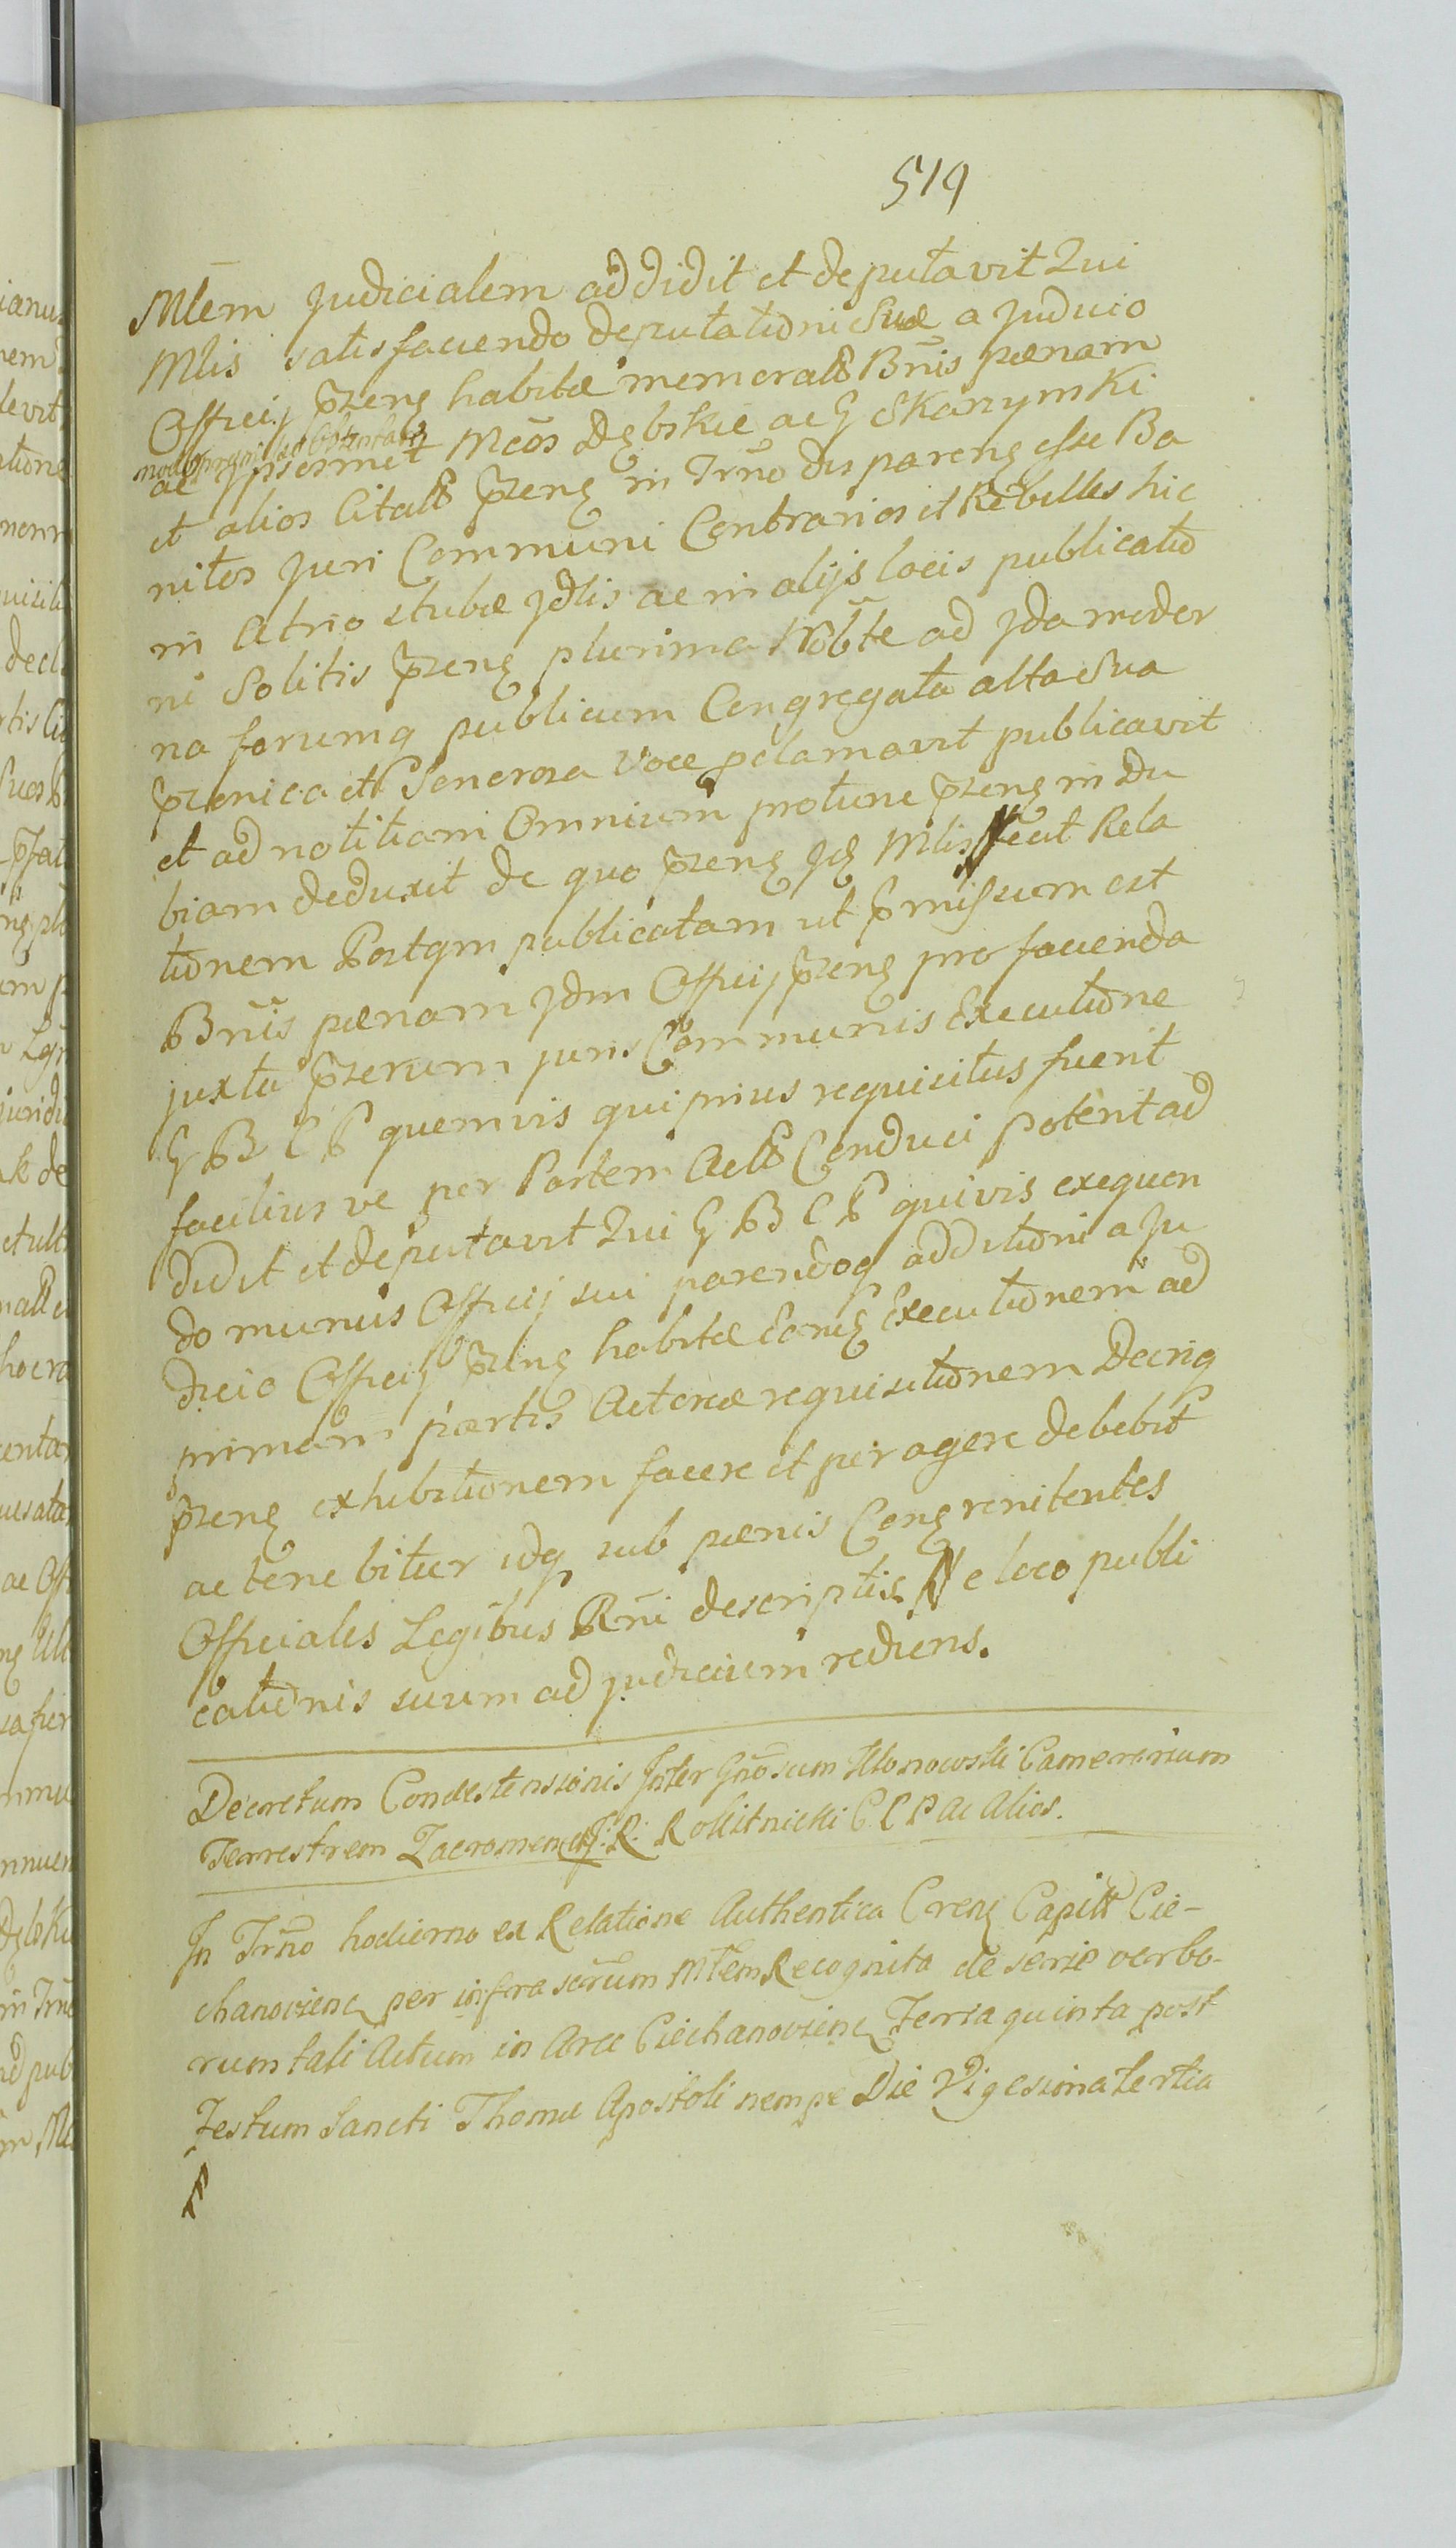 519
Mlem Judicialem addidit et deputavit Qui
Mlis satisfaciendo deputationi Suæ a Judicio
Officij pzens habitæ memoratt Bnis pænam
ac ipsosmet Mcos Dębskie ac G Skarzymski
et alios Citatt pzens in Trno dis parens esse Ba
nitos Juri Communi Contrarios et Rebelles hic
in Atrio stubæ Jdlis ac in alijs locis publicatio
ni Solitis pzens plurima Nobtte ad Jda moder
na forumq publicum Congregata alta Sua
pzonica et Generosa Voce pclamavit publicavit
et ad notitiam Omnium protunc pzens in Du
biam deduxit de quo pzens Jdē Mlis fecit Rela
tionem Postqm publicatam ut pmissum est
Bnis pænam Jdm Officij pzens pro facienda
juxta pzerum juris Communis Executione
G B C P quemvis qui prius requisitus fuerit
facilius ve per Partem Actt Conduci poterit ad
didit et deputavit Qui G B C P quivis exequen
do munus Officij sui parendoq additioni a Ju
dicio Officij pzens habitæ Eamq Executionem ad
primam partis Actoreæ requisitionem Decriq
pzens exhibitionem facere et peragere debebit
ac tenebitur idq sub pænis Conq renitentes
Officiales Legibus Rni descriptis Ne loco publi
cationis suum ad judicium rediens.
Decretum Condestensionis Inter Gnosum Camerarium
Terrestrem Zacromen R: Rokitnicki C C P ac Alios.
In Trno hodierno ex Relatione Authentica Crens Capitt Cie-
chanoviens per infra scrum Mlem Recognita de serie verbo-
rum tali Actum in Arce Ciechanoviens Feria quinta post
Festum Sancti Thomæ Apostoli nempe Die Vigesima tertia